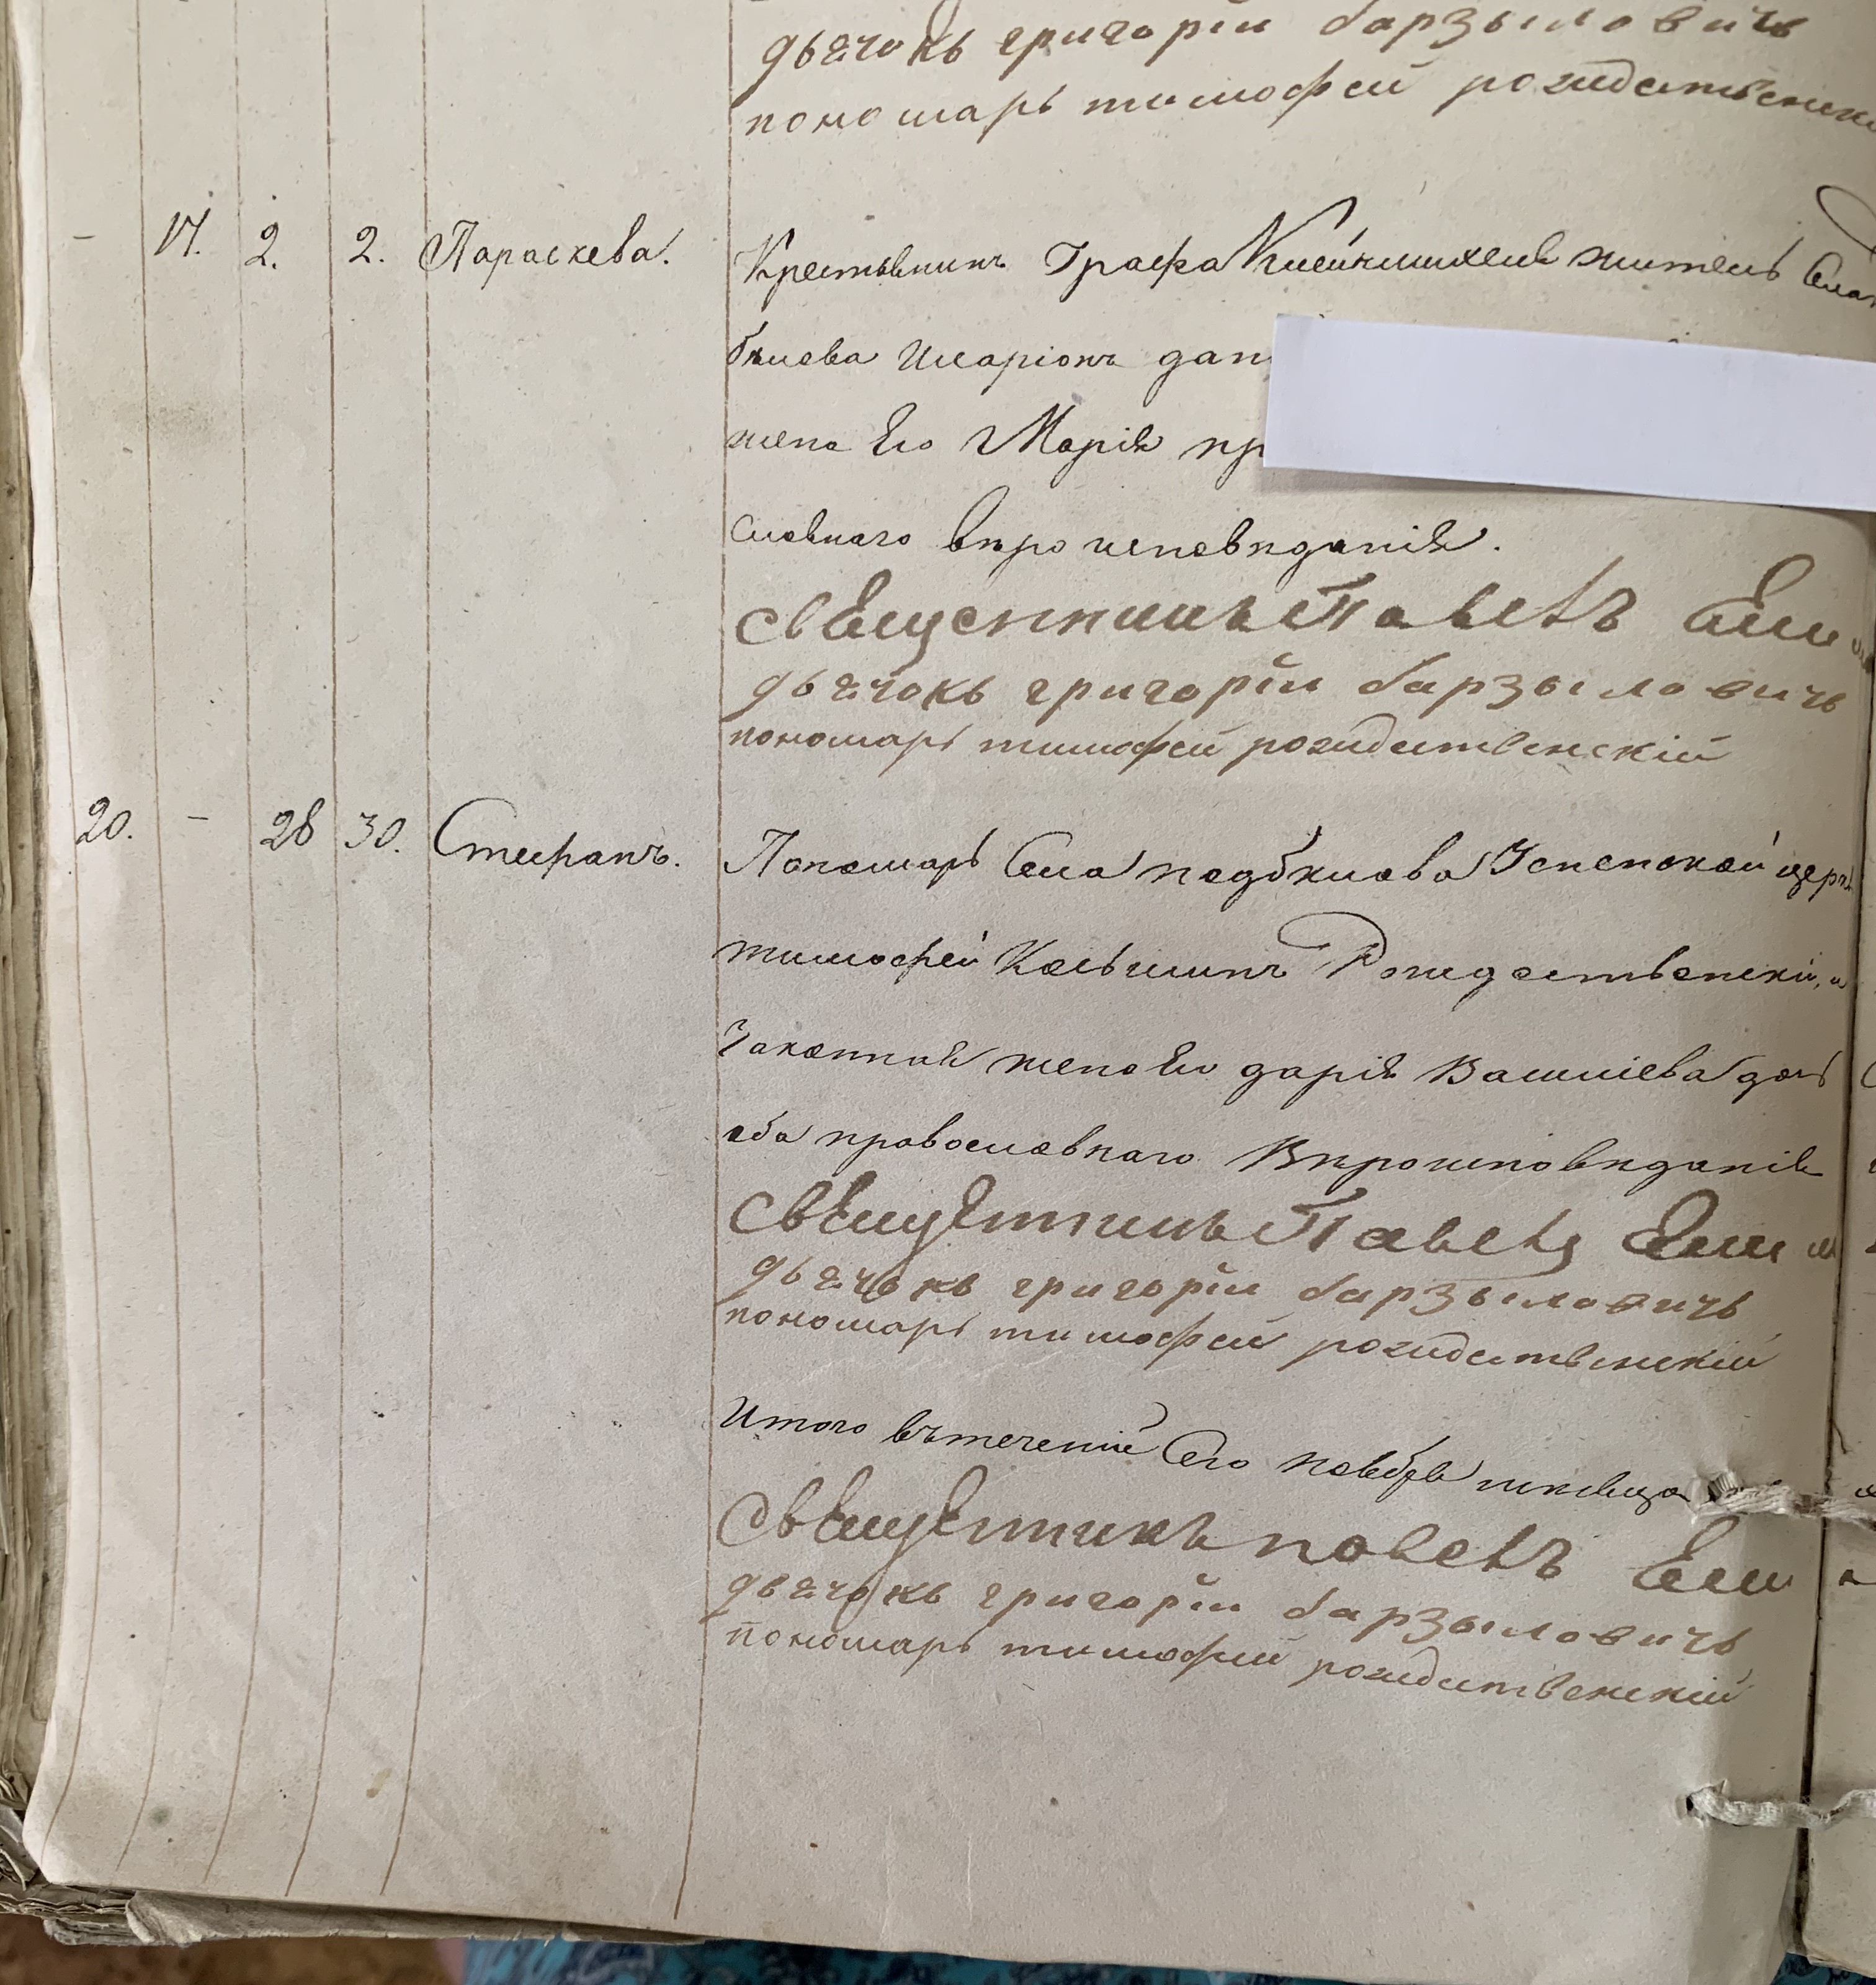 дьячокъ григорїи барзыловичь
пономарь тимофей рождественски
– 17. 2. 2. Параскева. Крестьянинъ Графа Клейнмихеля житель Села
бѣлова Иларіонъ дан
жена Его Марія пр
славнаго вѣроисповѣданія.
свЕщенникъ Павелъ
дьячокъ григорїи барзыловичь
пономарь тимофей рождественскій
20. – 28 30. Стефанъ. Пономарь Села подбѣлова Успенской церк
тимофей Козьминъ Рождественскій, и
Законная жена Его дарія Василіева дочь
оба православнаго Вѣроисповѣданія
свЕщЕнникъ Павелъ
дьячокъ григорїи барзыловичь
пономарь тимофей рождественскій
Итого вътеченіе Сего ноября мѣсяца
свЕщЕнникъ павелъ
дьячокъ григорїи барзыловичь
пономарь тимофей рождественскій